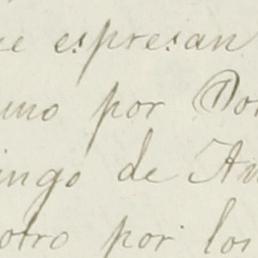 espresan
uno por Do
ingo de
otro por los